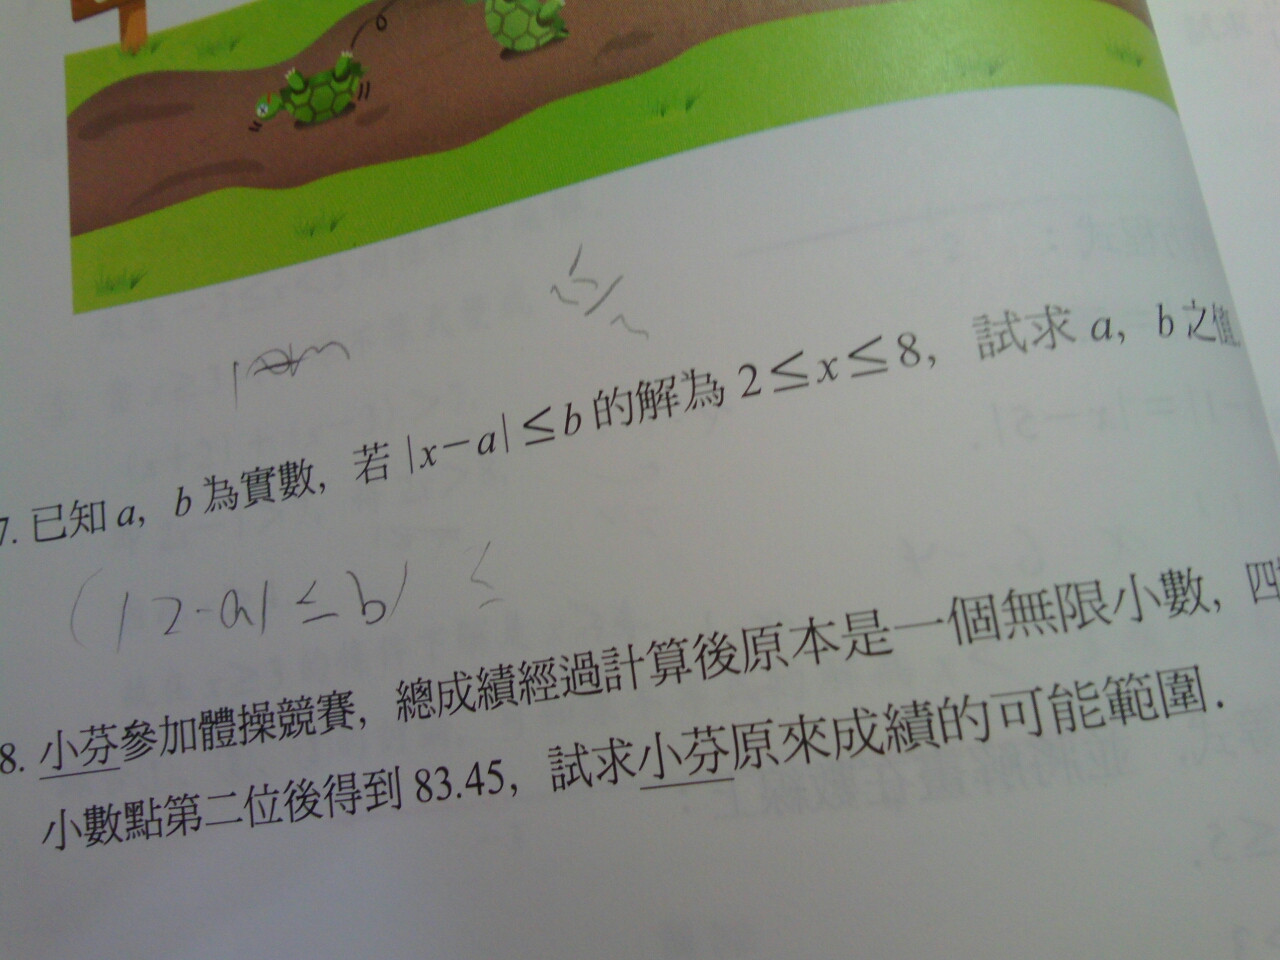 7. 已知 a, b 為實數, 若 |x−a|≤b 的解為 2≤x≤8, 試求 a, b 之值
(|2-a|≤b) ≤
8. 小芬參加體操競賽, 總成績經過計算後原本是一個無限小數, 四
小數點第二位後得到 83.45, 試求小芬原來成績的可能範圍.